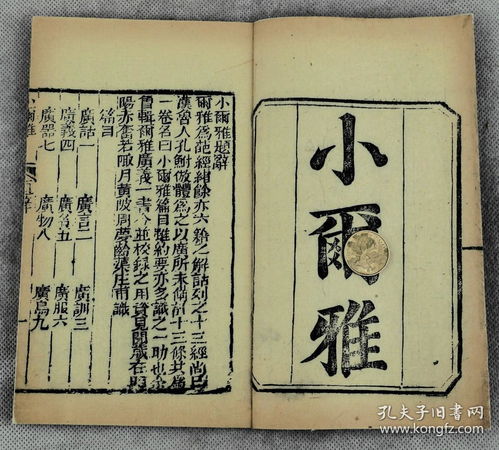 小爾雅
小爾雅題辭
爾雅爲葩經緒餘亦六之解詁列之十三經尚已
漢魯人孔鮒倣體爲之以廣所未備計十三條共爲
一卷名曰小爾雅篇目雖約要亦多識之一助也余
曾輯爾雅廣義一書今並校錄之用資見聞歲在昭
陽赤奮若陬月黃陂周夢渠庄甫識
篇目
廣詁一 廣言二 廣訓三
廣義四 廣名五 廣服六
廣器七 廣物八 廣鳥九
小爾雅
孔夫子旧书网
www.kongfz.com